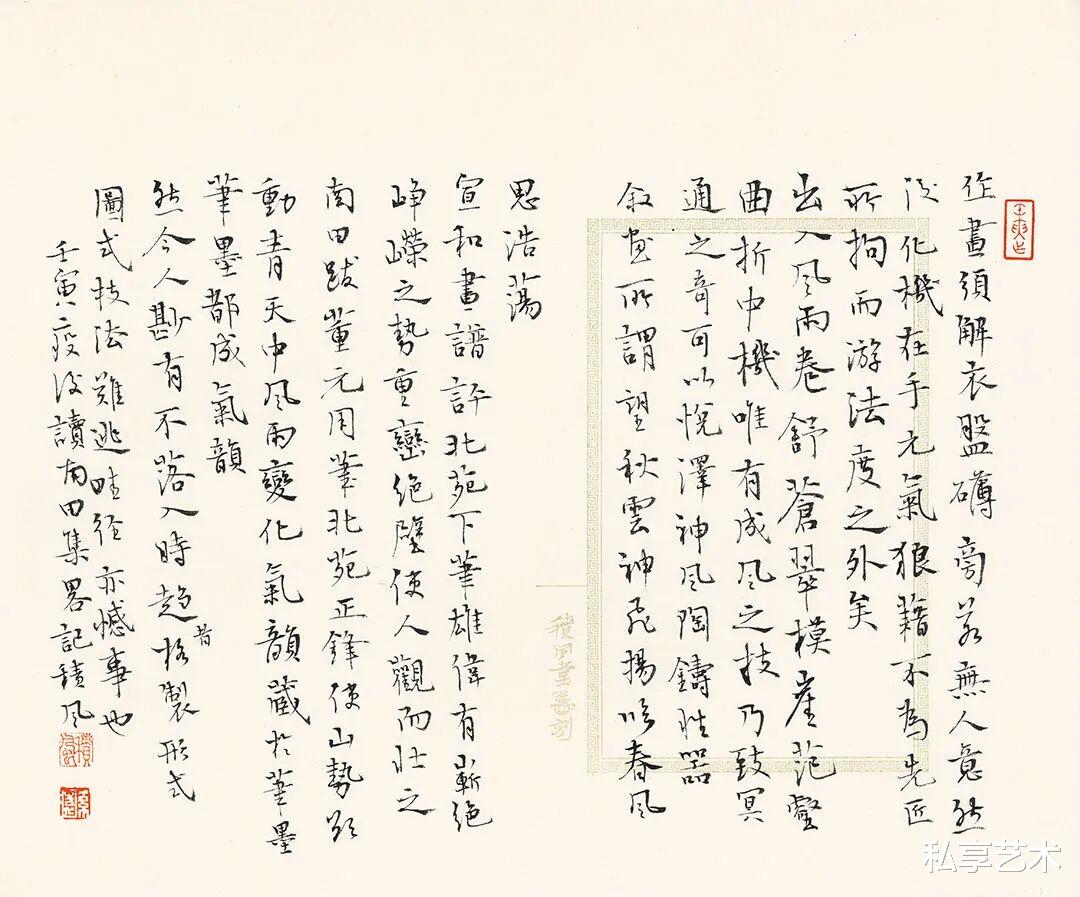 作畫須解衣盤礴旁若無人意然
後化機在手元氣狼藉不為先匠
所拘而游法度之外矣
出入風雨卷舒蒼翠模崖范壑
曲折中機唯有成風之技乃致冥
通之奇可以悅澤神風陶鑄性器
叙畫所謂望秋雲神飛揚臨春風
思浩蕩
宣和畫譜評北苑下筆雄偉有嶄絕
崢嶸之勢重巒絕壁使人觀而壯之
南田跋董元用筆北苑正鋒使山勢欲
動青天中風雨變化氣韻藏於筆墨
筆墨都成氣韻
昔
然今人尠有不落入時趨格製形式
圖式技法難逃畦徑亦憾事也
壬寅疫後讀南田集畧記積風
私享艺术